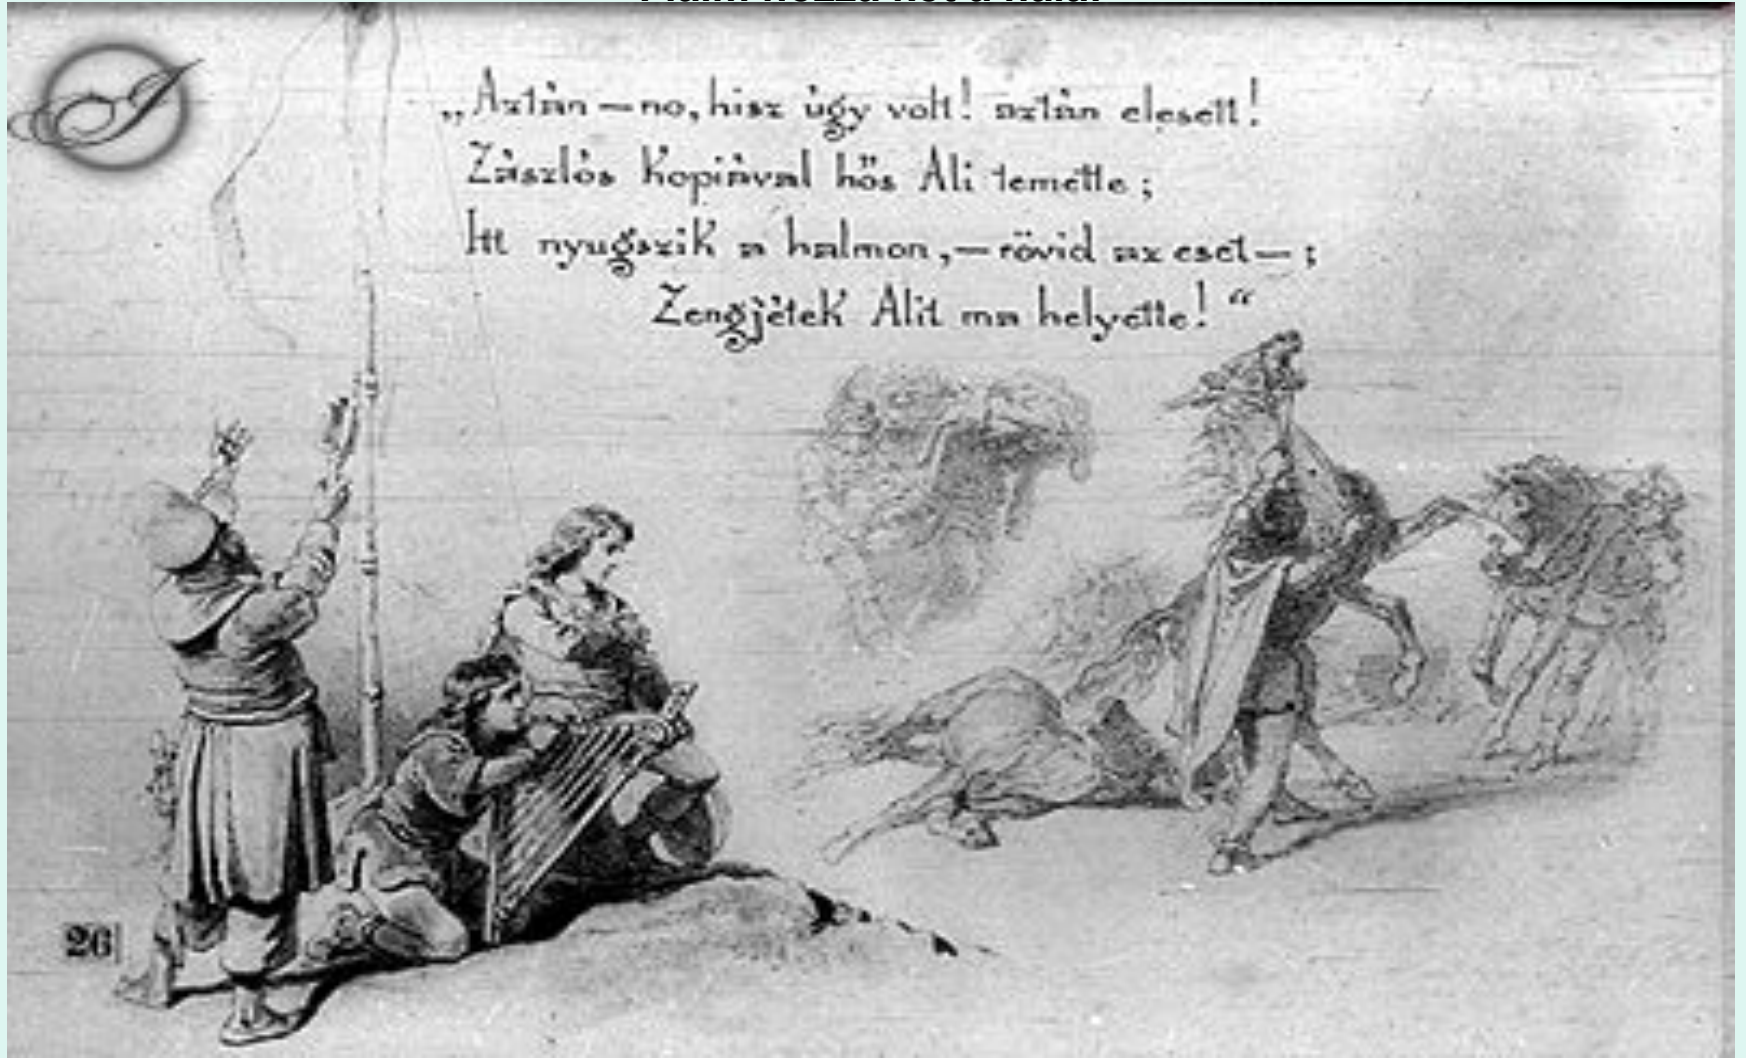 „Aztán – no, hisz úgy volt! aztán elesett!
Zászlós kopiával hős Ali temette;
Itt nyugszik a halmon, – rövid az eset –;
Zengjétek Alit ma helyette!“
26